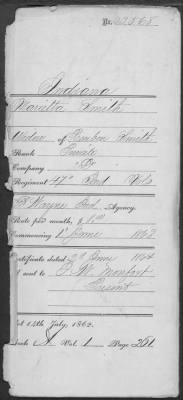 No. 22568
Indiana
Smith
Widow of Reuben Smith
Rank Private
Company "D"
Regiment 47" Ind Vols
Ft Wayne Ind. Agency.
Rate per month, $ 8 00
Commencing 1" June 1862
Certificate dated June 1864
sent to
Present
Act 14th July, 1862.
Book Vol. 1 Page 251